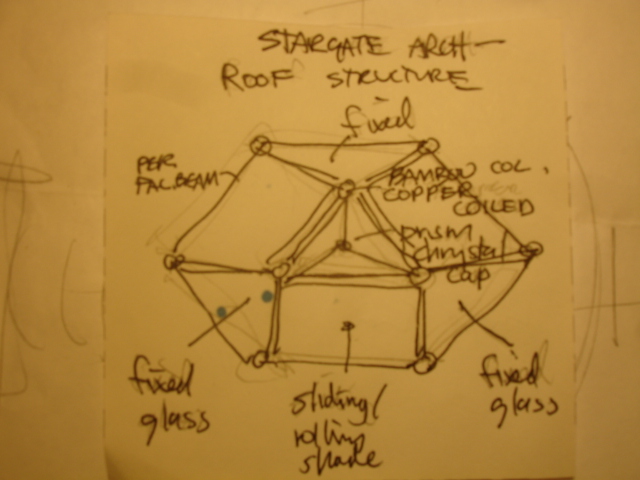 STARGATE ARCH -
ROOF STRUCTURE
fixed
PER.
FAC. BEAM
BAMBOO COL.
COPPER
COILED
prism
chrystal
cap
fixed
glass
sliding/
rolling
shade
fixed
glass